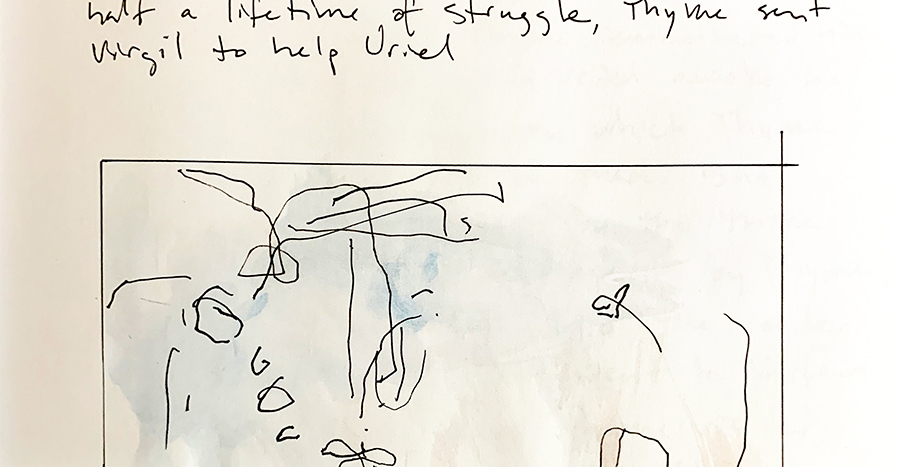 half a lifetime of struggle, Thyme sent
Virgil to help Uriel